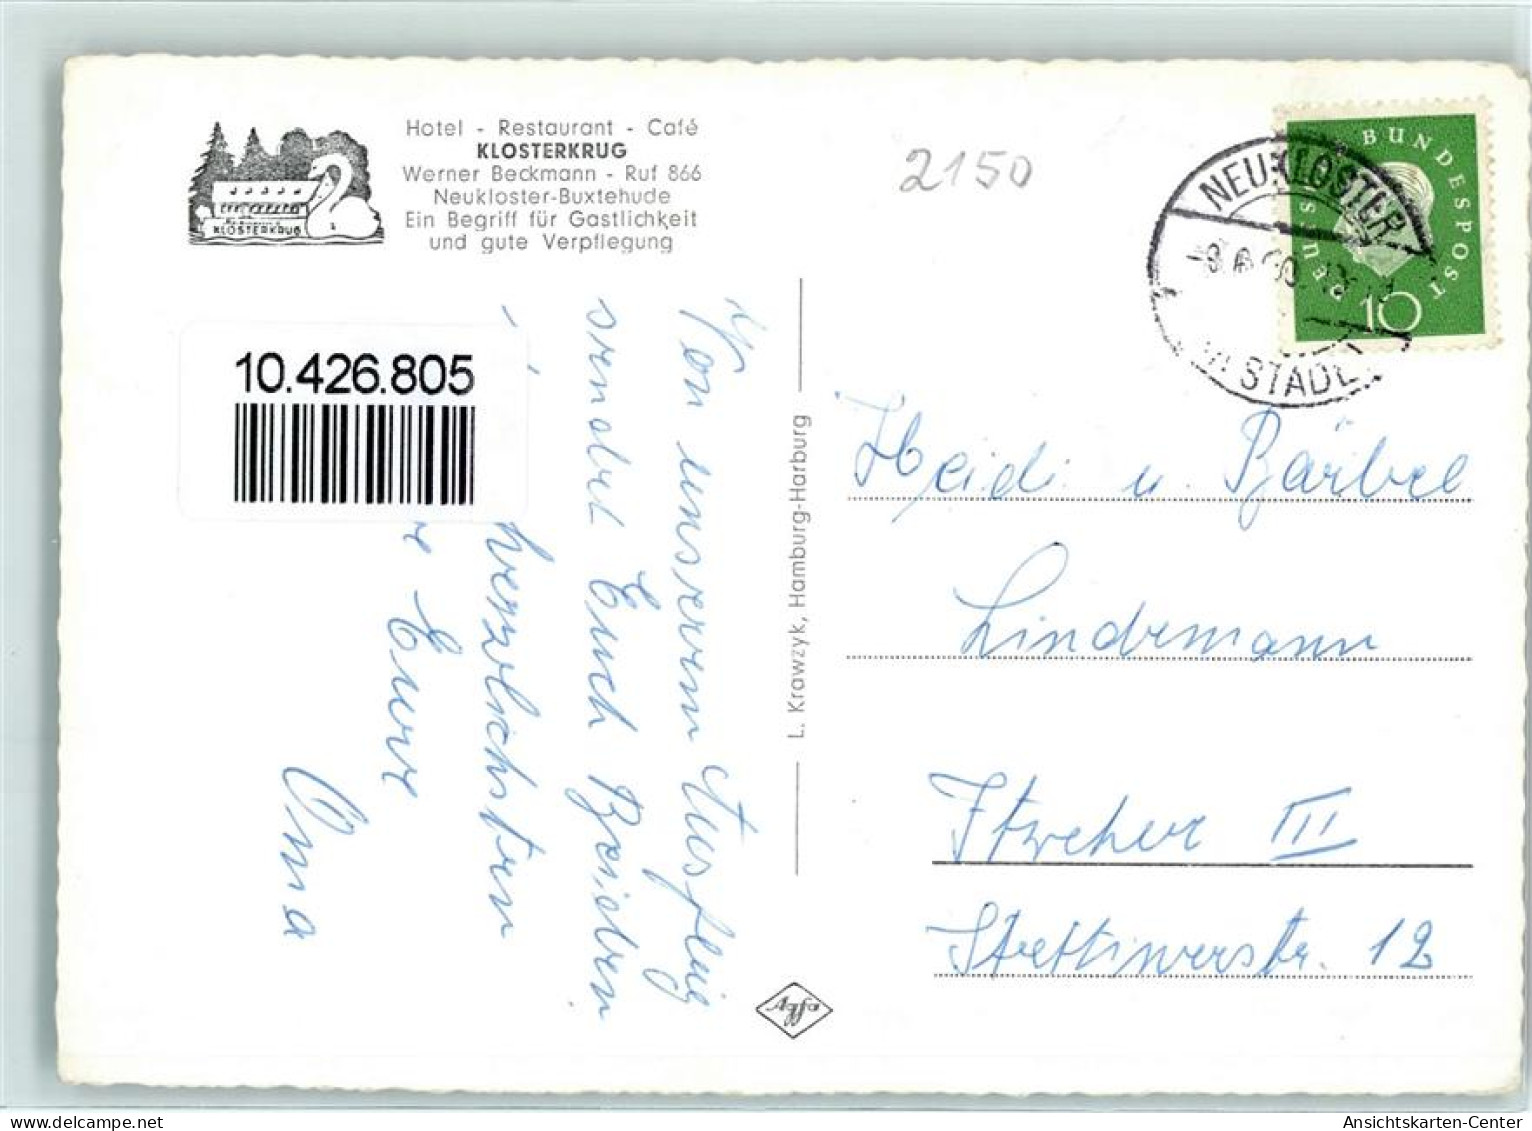 Hotel - Restaurant - Café
KLOSTERKRUG
Werner Beckmann - Ruf 866
Neukloster-Buxtehude
Ein Begriff für Gastlichkeit
und gute Verpflegung
KLOSTERKRUG
2150
NEUKLOSTER
STADE
DEUTSCHE BUNDESPOST
10
10.426.805
Von unserem Ausflug
sendet Euch Beiden
herzlichsten
Eure
Oma
L. Krawzyk, Hamburg-Harburg
Agfa
Heidi u. Bärbel
Lindemann
Itzehoe III
Stettinerstr. 12
Ansichtskarten-Center